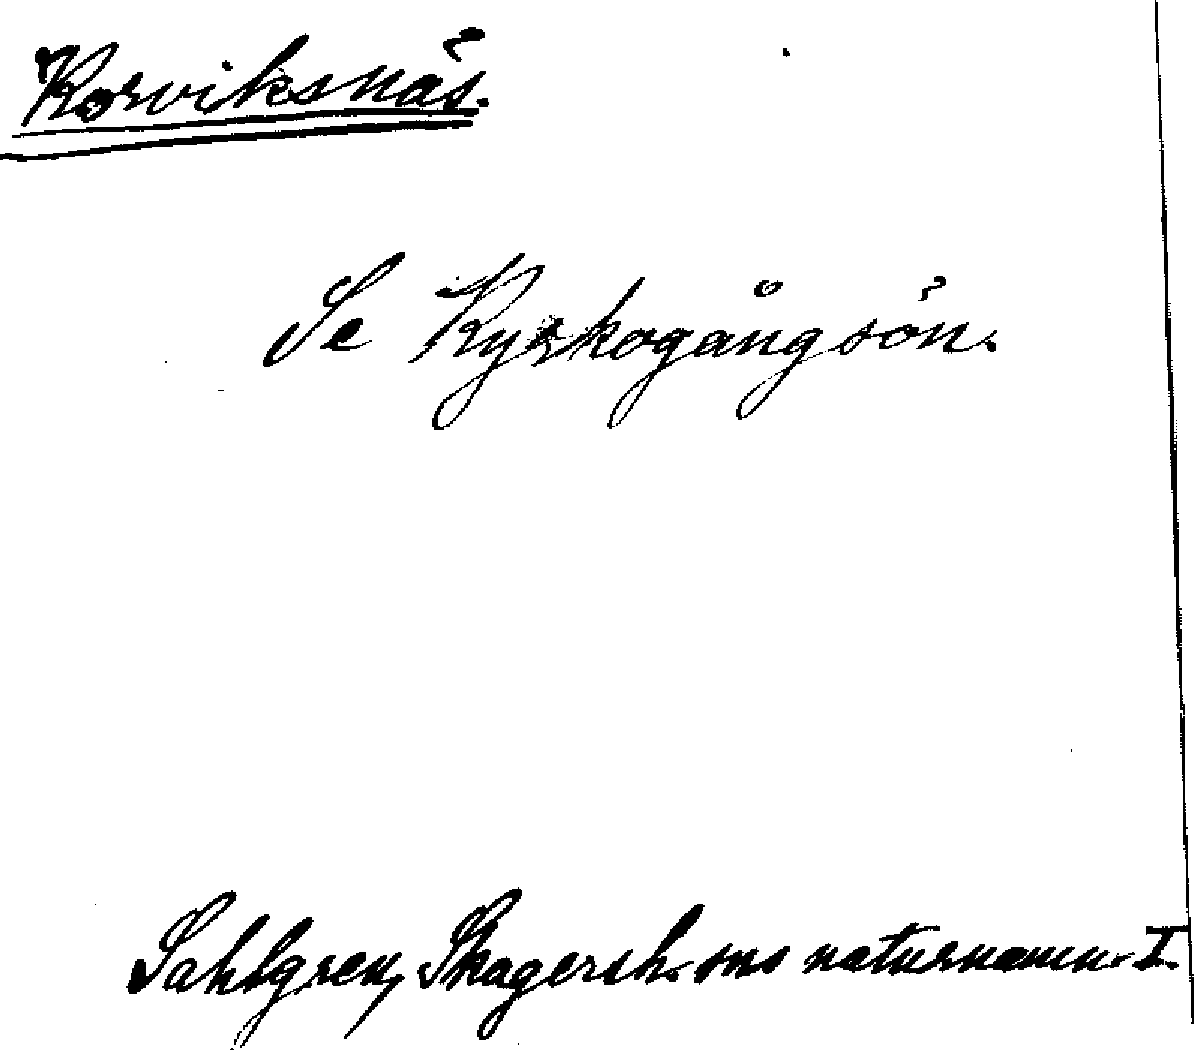 Korviksnäs.
Se Kyrkogångsön.
Sahlgren, Skagersh. sns naturnamn I.